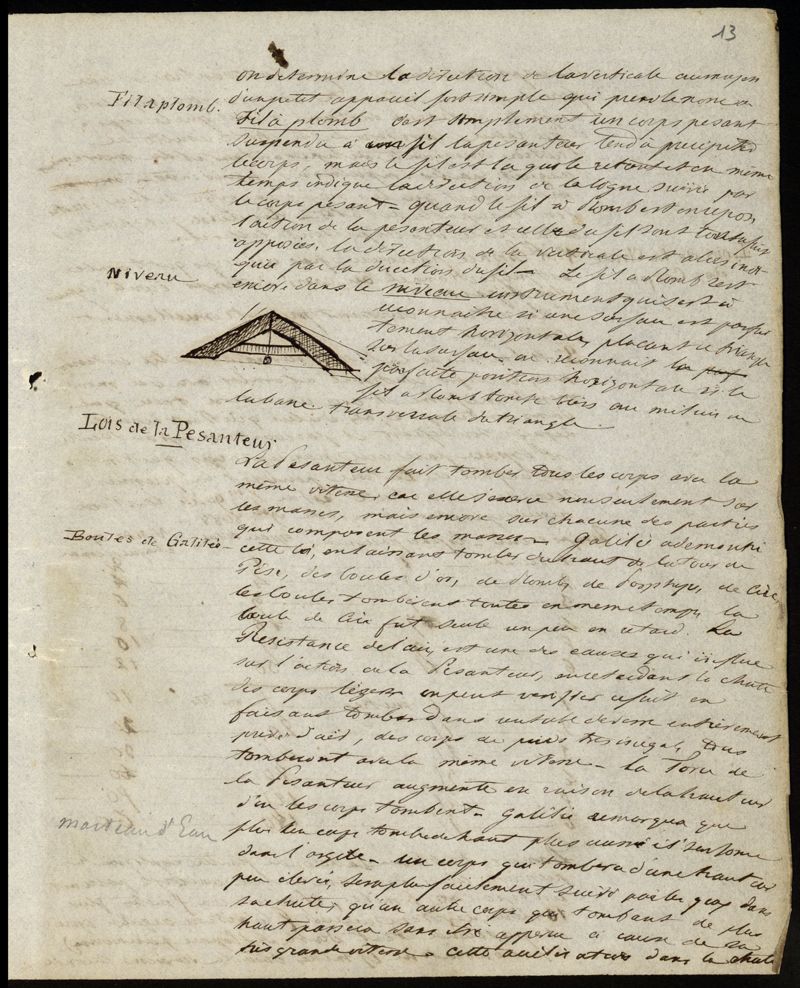 13
on determine la direction de la verticale au moyen
Fil à plomb.
d'un petit appareil fort simple qui prend le nom de
fil à plomb c'est simplement un corps pesant
suspendu à un fil la pesanteur tend à précipiter
le corps, mais le fil est là qui le retient et en même
temps indique la direction de la ligne suivie par
le corps pesant - quand le fil à plomb est en repos
l'action de la pesanteur et celle du fil sont tout à fait
opposées, la direction de la verticale est alors indi-
quée par la direction du fil - Le fil à plomb sert
Niveau
encore dans le niveau instrument qui sert à
reconnaître si une surface est parfai
tement horizontale, plaçant le triangle
sur la surface on reconnait la
parfaite position horizontale si le
fil à plomb tombe bien au milieu de
la barre transversale du triangle.
Lois de la Pesanteur
La Pesanteur fait tomber tous les corps avec la
même vitesse, car elle s'exerce non seulement sur
les masses, mais encore sur chacune des parties
qui composent les masses - Galilée a demontré
Boules de Galilée -
cette loi, en laissant tomber du haut de la tour de
Pise, des boules d'or, de plomb, de Porphyre, de Cire
les boules tombèrent toutes en même temps la
boule de Cire fut seule un peu en retard. La
Resistance de l'air, est une des causes qui influe
sur l'action de la Pesanteur, en retardant la chute
des corps légers on peut verifier ce fait en
faisant tomber dans un tube de verre entièrement
privé d'air, des corps de poids très inégal, tous
tomberont avec la même vitesse - La Force de
la Pesanteur augmente en raison de la hauteur
d'où les corps tombent - Galilée remarqua que
marteau d'Eau
plus un corps tombe de haut plus avant il s'enfonce
dans l'argile - un corps qui tombera d'une hauteur
peu elevée, sera plus facilement suivi par les yeux dans
sa chute, qu'un autre corps qui tombant de plus
haut passera sans être apperçu à cause de sa
très grande vitesse - cette accélération dans la chute